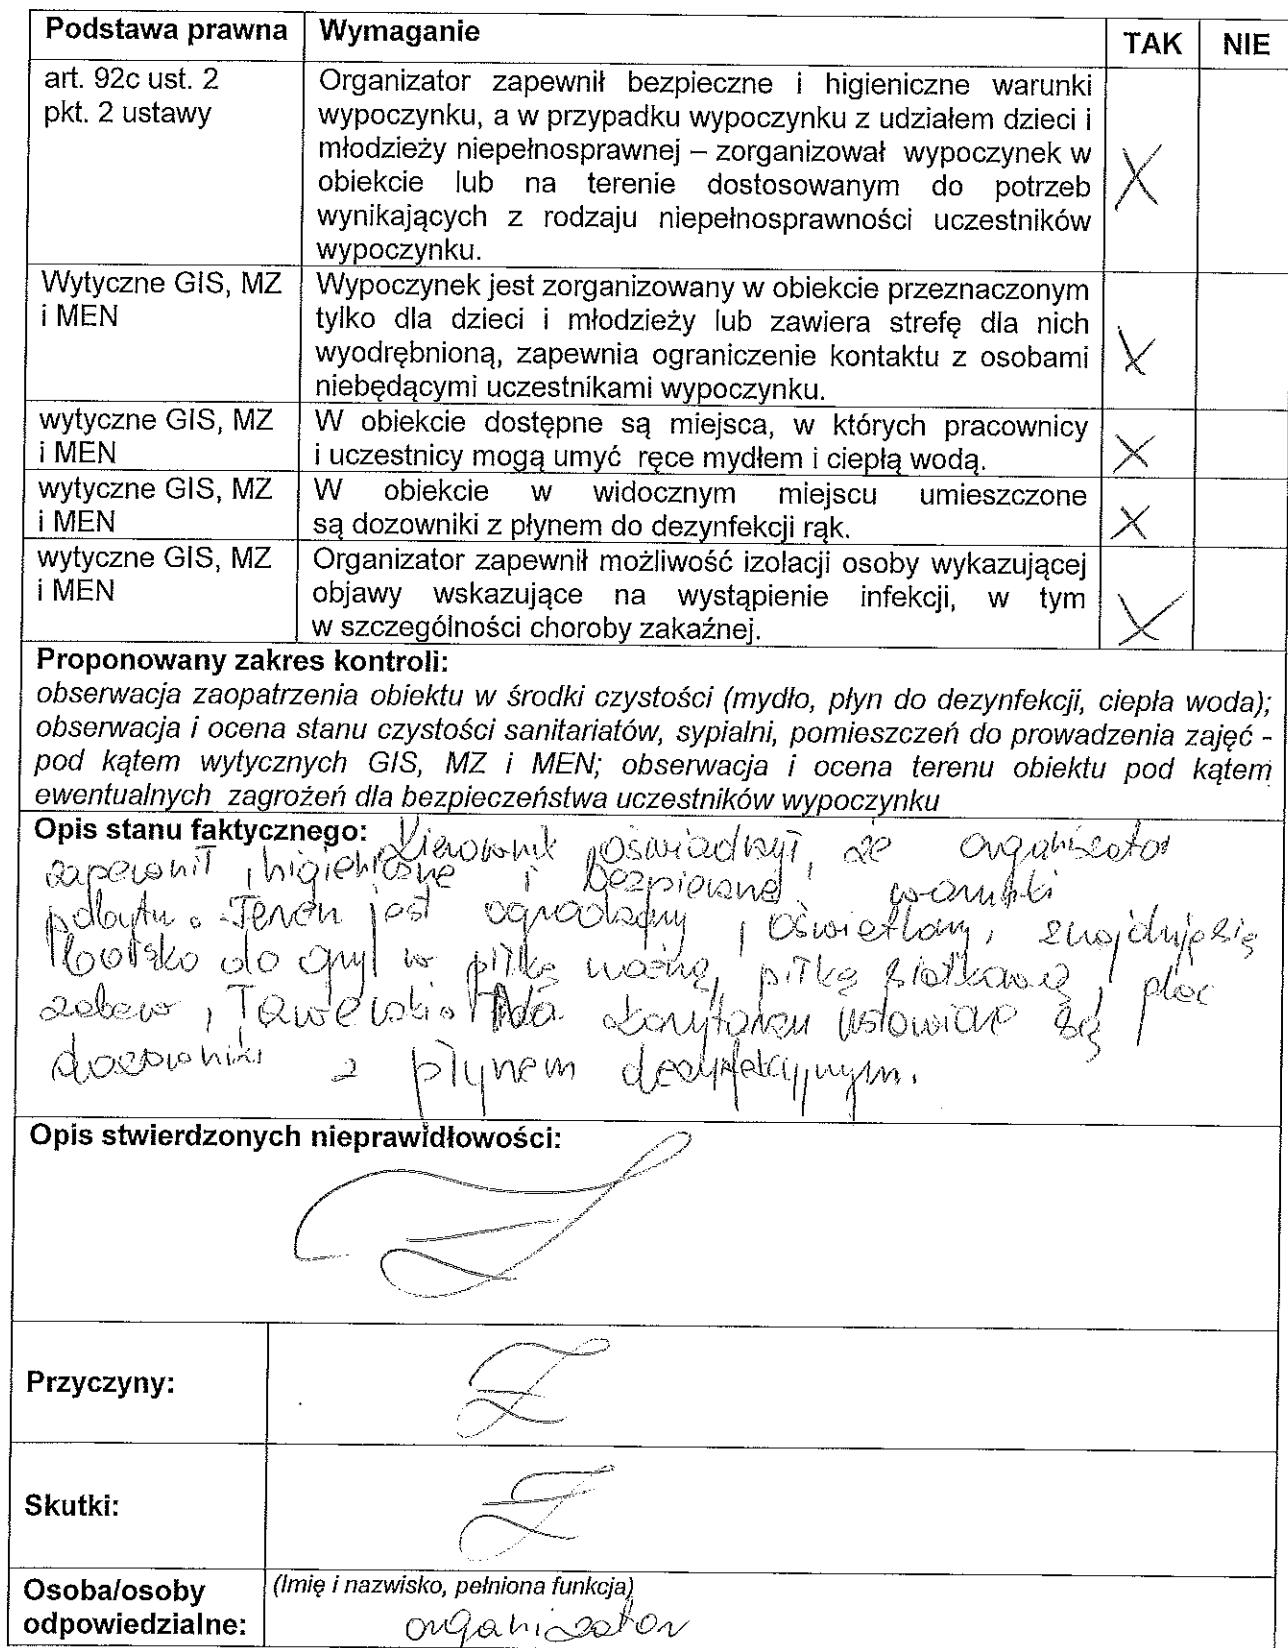 Podstawa prawna Wymaganie TAK NIE
art. 92c ust. 2
pkt. 2 ustawy
Organizator zapewnił bezpieczne i higieniczne warunki
wypoczynku, a w przypadku wypoczynku z udziałem dzieci i
młodzieży niepełnosprawnej – zorganizował wypoczynek w
obiekcie lub na terenie dostosowanym do potrzeb
wynikających z rodzaju niepełnosprawności uczestników
wypoczynku.
X
Wytyczne GIS, MZ
i MEN
Wypoczynek jest zorganizowany w obiekcie przeznaczonym
tylko dla dzieci i młodzieży lub zawiera strefę dla nich
wyodrębnioną, zapewnia ograniczenie kontaktu z osobami
niebędącymi uczestnikami wypoczynku.
X
wytyczne GIS, MZ
i MEN
W obiekcie dostępne są miejsca, w których pracownicy
i uczestnicy mogą umyć ręce mydłem i ciepłą wodą.
X
wytyczne GIS, MZ
i MEN
W obiekcie w widocznym miejscu umieszczone
są dozowniki z płynem do dezynfekcji rąk.
X
wytyczne GIS, MZ
i MEN
Organizator zapewnił możliwość izolacji osoby wykazującej
objawy wskazujące na wystąpienie infekcji, w tym
w szczególności choroby zakaźnej.
X
Proponowany zakres kontroli:
obserwacja zaopatrzenia obiektu w środki czystości (mydło, płyn do dezynfekcji, ciepła woda);
obserwacja i ocena stanu czystości sanitariatów, sypialni, pomieszczeń do prowadzenia zajęć -
pod kątem wytycznych GIS, MZ i MEN; obserwacja i ocena terenu obiektu pod kątem
ewentualnych zagrożeń dla bezpieczeństwa uczestników wypoczynku
Opis stanu faktycznego: Kierownik oświadczył, że organizator
zapewnił higieniczne i bezpieczne warunki
pobytu. Teren jest ogrodzony, oświetlony, znajduje się
boisko do gry w piłkę nożną, piłkę siatkową, plac
zabaw, ławeczki. Na korytarzu ustawione są
dozowniki z płynem dezynfekcyjnym.
Opis stwierdzonych nieprawidłowości:
Przyczyny:
Skutki:
Osoba/osoby
odpowiedzialne:
(Imię i nazwisko, pełniona funkcja)
organizator